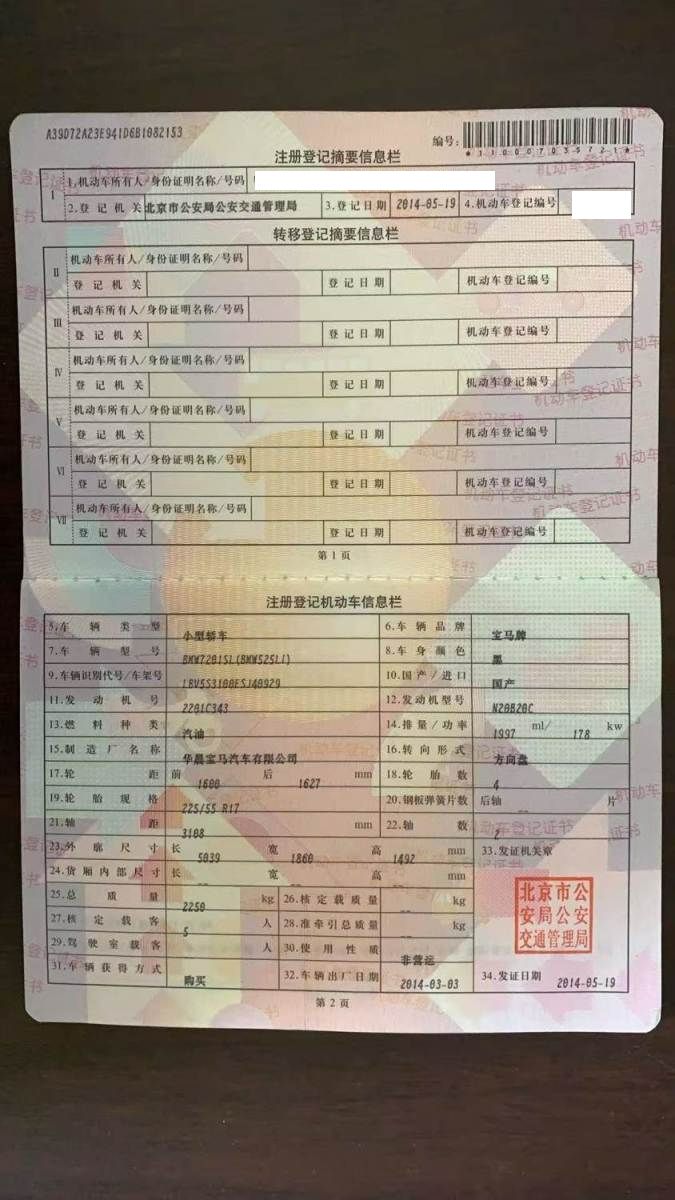 A39D72A23E941D6B1082153
编号:
*110007035721*
注册登记摘要信息栏
I 1.机动车所有人/身份证明名称/号码
2.登记机关 北京市公安局公安交通管理局 3.登记日期 2014-05-19 4.机动车登记编号
转移登记摘要信息栏
II 机动车所有人/身份证明名称/号码
登记机关 登记日期 机动车登记编号
III 机动车所有人/身份证明名称/号码
登记机关 登记日期 机动车登记编号
IV 机动车所有人/身份证明名称/号码
登记机关 登记日期 机动车登记编号
V 机动车所有人/身份证明名称/号码
登记机关 登记日期 机动车登记编号
VI 机动车所有人/身份证明名称/号码
登记机关 登记日期 机动车登记编号
VII 机动车所有人/身份证明名称/号码
登记机关 登记日期 机动车登记编号
第1页
注册登记机动车信息栏
5.车辆类型 小型轿车 6.车辆品牌 宝马牌
7.车辆型号 BMW7201SL(BMW525Li) 8.车身颜色 黑
9.车辆识别代号/车架号 LBV5S3100ESJ40929 10.国产/进口 国产
11.发动机号 2201C343 12.发动机型号 N20B20C
13.燃料种类 汽油 14.排量/功率 1997 ml/ 178 kw
15.制造厂名称 华晨宝马汽车有限公司 16.转向形式 方向盘
17.轮距 前 1600 后 1627 mm 18.轮胎数 4
19.轮胎规格 225/55 R17 20.钢板弹簧片数 后轴 -- 片
21.轴距 3108 mm 22.轴数 2
23.外廓尺寸 长 5039 宽 1860 高 1492 mm 33.发证机关章
24.货厢内部尺寸 长 -- 宽 -- 高 -- mm
25.总质量 2250 kg 26.核定载质量 -- kg
27.核定载客 5 人 28.准牵引总质量 -- kg
29.驾驶室载客 -- 人 30.使用性质 非营运
31.车辆获得方式 购买 32.车辆出厂日期 2014-03-03 34.发证日期 2014-05-19
北京市公
安局公安
交通管理局
第2页